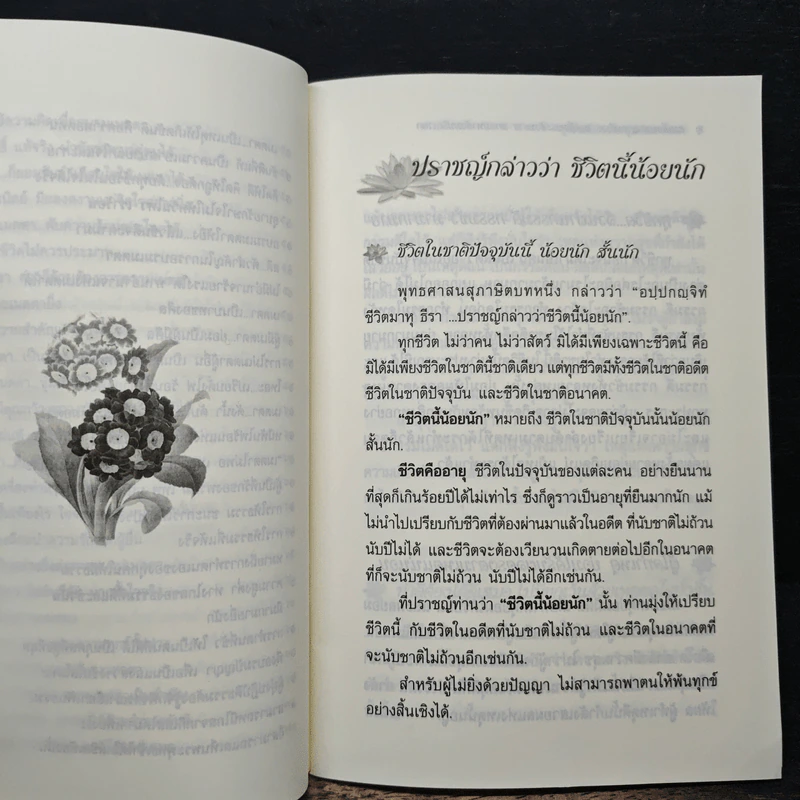 ปราชญ์กล่าวว่า ชีวิตนี้น้อยนัก
ชีวิตในชาติปัจจุบันนี้ น้อยนัก สั้นนัก
พุทธศาสนสุภาษิตบทหนึ่ง กล่าวว่า “อปฺปกญฺจิทํ
ชีวิตมาหุ ธีรา ...ปราชญ์กล่าวว่าชีวิตนี้น้อยนัก”.
ทุกชีวิต ไม่ว่าคน ไม่ว่าสัตว์ มิได้มีเพียงเฉพาะชีวิตนี้ คือ
มิได้มีเพียงชีวิตในชาตินี้ชาติเดียว แต่ทุกชีวิตมีทั้งชีวิตในชาติอดีต
ชีวิตในชาติปัจจุบัน และชีวิตในชาติอนาคต.
“ชีวิตนี้น้อยนัก” หมายถึง ชีวิตในชาติปัจจุบันนั้นน้อยนัก
สั้นนัก.
ชีวิตคืออายุ ชีวิตในปัจจุบันของแต่ละคน อย่างยืนนาน
ที่สุดก็เกินร้อยปีได้ไม่เท่าไร ซึ่งก็ดูราวเป็นอายุที่ยืนมากนัก แม้
ไม่นำไปเปรียบกับชีวิตที่ต้องผ่านมาแล้วในอดีต ที่นับชาติไม่ถ้วน
นับปีไม่ได้ และชีวิตจะต้องเวียนวนเกิดตายต่อไปอีกในอนาคต
ที่ก็จะนับชาติไม่ถ้วน นับปีไม่ได้อีกเช่นกัน.
ที่ปราชญ์ท่านว่า “ชีวิตนี้น้อยนัก” นั้น ท่านมุ่งให้เปรียบ
ชีวิตนี้ กับชีวิตในอดีตที่นับชาติไม่ถ้วน และชีวิตในอนาคตที่
จะนับชาติไม่ถ้วนอีกเช่นกัน.
สำหรับผู้ไม่ยิ่งด้วยปัญญา ไม่สามารถพาตนให้พ้นทุกข์
อย่างสิ้นเชิงได้.